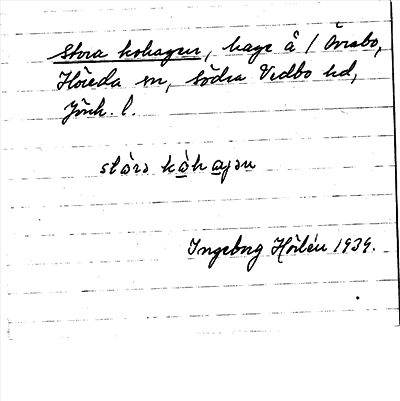 Stora kohagen, hage å / Övrabo,
Höreda sn, Södra Vedbo hd,
Jönk. l.
stòrə kòhàgən
Ingeborg Hörlén 1939.